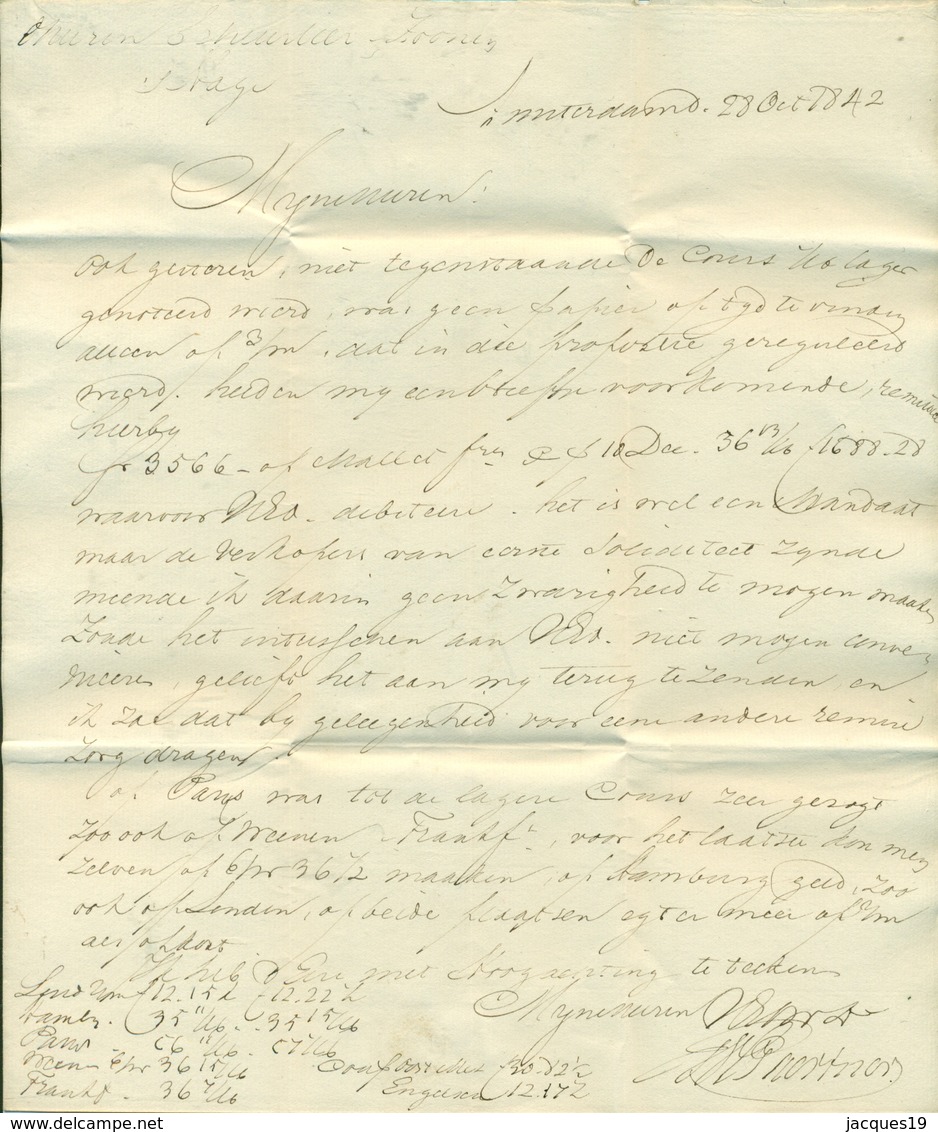 Heeren Scheurleer & Zoonen
's Hage
Amsterdam. 28 Oct 1842
Mynheeren!
Ook gisteren, niet tegenstaande De Cours lager
genoteerd wierd, was geen papier op tyd te vinden
alleen of 3/m, dat in die proportie gereguleerd
wierd. heeden my een briefje voorkomende, remitteere
hierby
fr 3566 - of Mallet frs 10 Dec. 36 13/16 f 1688.28
waarvoor UEd. debiteere. het is wel een Mandaat
maar de Verkopers van eerste soliditeit zynde
meende ik daarin geen Zwarigheid te mogen maaken
Zoude het intusschen aan UEd. niet mogen conve-
nieren, gelieft het aan my terug te Zenden en
ik zal dat by geleegenheid voor eene andere remise
Zorg dragen.
op Parys was tot de lagere Cours zeer gezogt
zoo ook op Weenen Frankft, voor het laatste kon men
zelven op 36 1/2 maaken, op Hamburg geld, zoo
ook op Londen, op beide plaatsen egter meer op 2/m
als op kort
Ik heb d'Eere met Hoogachting te teeken
Mynheeren UEd
Lond 2/m f 12.15 - 12.22 1/2
Hamb. 35 11/16 - 35 15/16
Parys 56 11/16 - 57 1/16
Weenen 36 15/16
Frankf. 36 7/16
Engelsch 12.17 1/2
jacques19